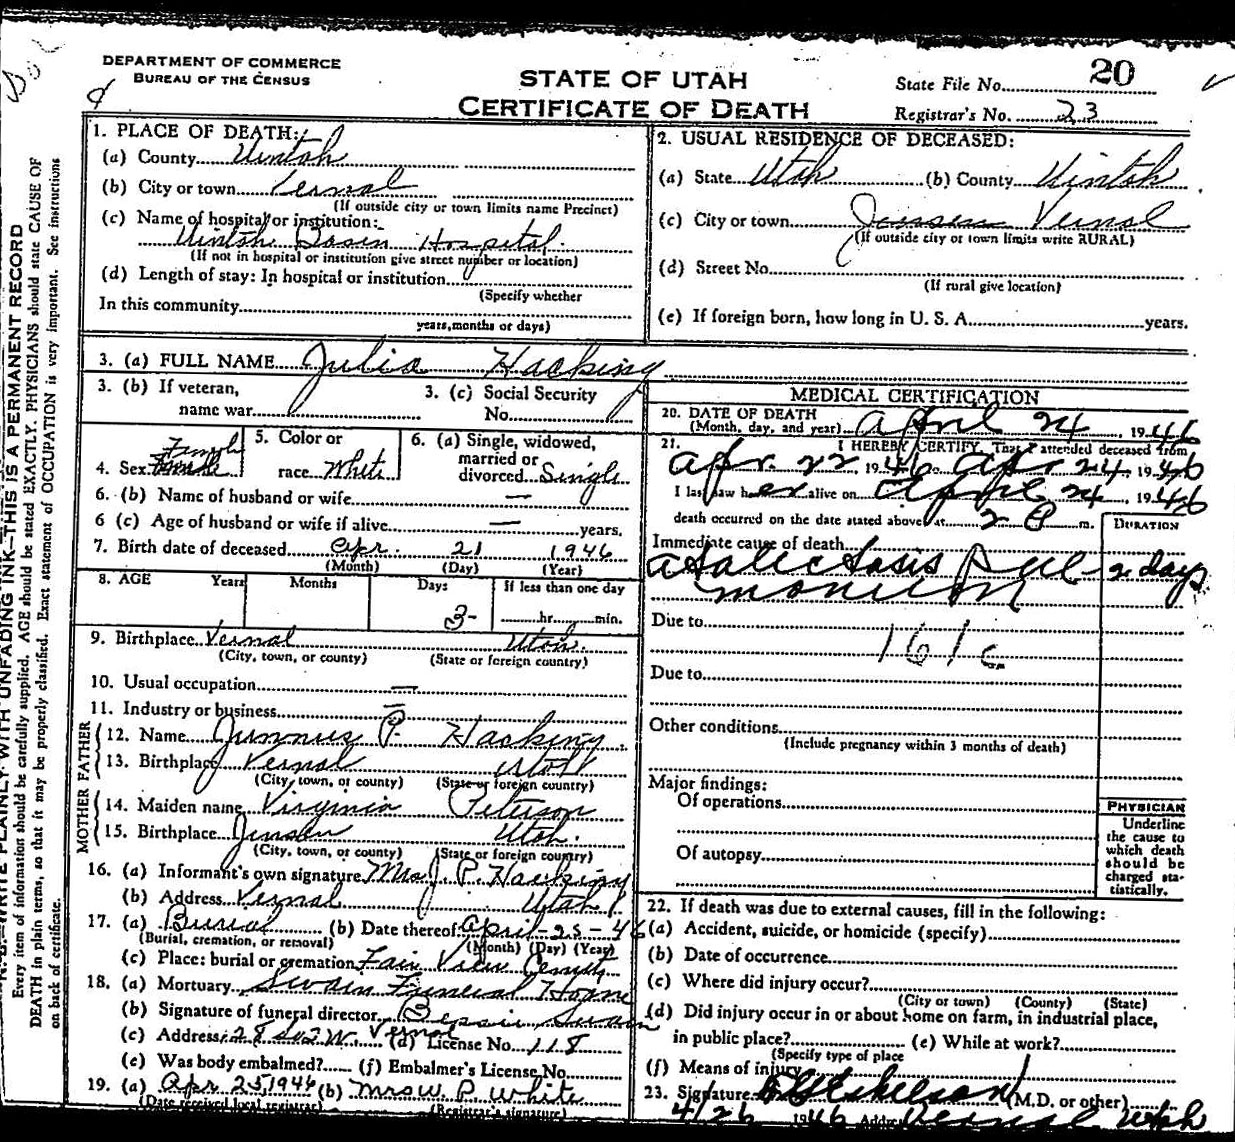 DEPARTMENT OF COMMERCE
BUREAU OF THE CENSUS
STATE OF UTAH
CERTIFICATE OF DEATH
State File No. 20
Registrar's No. 23
N. B.—WRITE PLAINLY WITH UNFADING INK—THIS IS A PERMANENT RECORD
Every item of information should be carefully supplied. AGE should be stated EXACTLY. PHYSICIANS should state CAUSE OF
DEATH in plain terms, so that it may be properly classified. Exact statement of OCCUPATION is very important. See instructions
on back of certificate.
1. PLACE OF DEATH:
(a) County Uintah
(b) City or town Vernal
(If outside city or town limits name Precinct)
(c) Name of hospital or institution:
Uintah Basin Hospital
(If not in hospital or institution give street number or location)
(d) Length of stay: In hospital or institution
(Specify whether
In this community
years, months or days)
2. USUAL RESIDENCE OF DECEASED:
(a) State Utah (b) County Uintah
(c) City or town Jensen Vernal
(If outside city or town limits write RURAL)
(d) Street No.
(If rural give location)
(e) If foreign born, how long in U. S. A. years.
3. (a) FULL NAME Julia Hacking
3. (b) If veteran,
name war
3. (c) Social Security
No.
4. Sex Female
5. Color or
race White
6. (a) Single, widowed,
married or
divorced Single
6. (b) Name of husband or wife —
6 (c) Age of husband or wife if alive — years.
7. Birth date of deceased Apr. 21 1946
(Month) (Day) (Year)
8. AGE Years Months Days If less than one day
3 hr. min.
9. Birthplace Vernal Utah.
(City, town, or county) (State or foreign country)
10. Usual occupation —
11. Industry or business —
FATHER
12. Name Junnius P. Hacking
13. Birthplace Vernal Utah
(City, town, or county) (State or foreign country)
MOTHER
14. Maiden name Virginia Peterson
15. Birthplace Jensen Utah.
(City, town, or county) (State or foreign country)
16. (a) Informant's own signature Mrs J. P. Hacking
(b) Address Vernal Utah
17. (a) Burial (b) Date thereof April-25-46
(Burial, cremation, or removal) (Month) (Day) (Year)
(c) Place: burial or cremation Fair View Cemet
18. (a) Mortuary Swain Funeral Home
(b) Signature of funeral director Bessie Swain
(c) Address Vernal (d) License No. 118
(e) Was body embalmed? (f) Embalmer's License No.
19. (a) Apr 25, 1946 (b) Mrs W. P. White
(Date received local registrar) (Registrar's signature)
MEDICAL CERTIFICATION
20. DATE OF DEATH
(Month, day, and year) April 24, 1946
21. I HEREBY CERTIFY That I attended deceased from
Apr. 22 1946 Apr 24, 1946
I last saw her alive on April 24, 1946
death occurred on the date stated above at 2 P m.
DURATION
Immediate cause of death
Atalectasis Pul 2 days
Due to
161c
Due to
Other conditions
(Include pregnancy within 3 months of death)
Major findings:
Of operations
Of autopsy
PHYSICIAN
Underline
the cause to
which death
should be
charged sta-
tistically.
22. If death was due to external causes, fill in the following:
(a) Accident, suicide, or homicide (specify)
(b) Date of occurrence
(c) Where did injury occur?
(City or town) (County) (State)
(d) Did injury occur in or about home on farm, in industrial place,
in public place? (e) While at work?
(Specify type of place
(f) Means of injury
23. Signature (M.D. or other)
4/26 1946 Address Vernal Utah